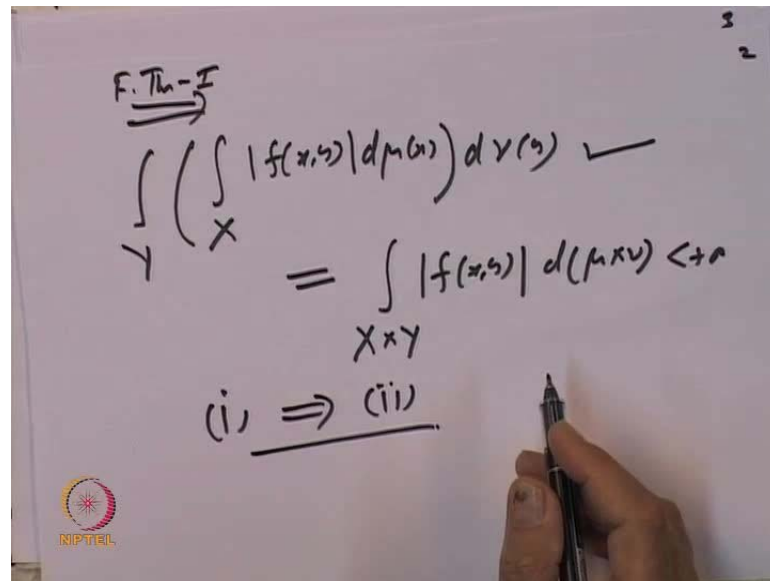 3
2
F. Th - I
∫_Y ( ∫_X |f(x,y)| dμ(x) ) dν(y)
= ∫_{X×Y} |f(x,y)| d(μ×ν) < +∞
(i) ⟹ (ii)
NPTEL